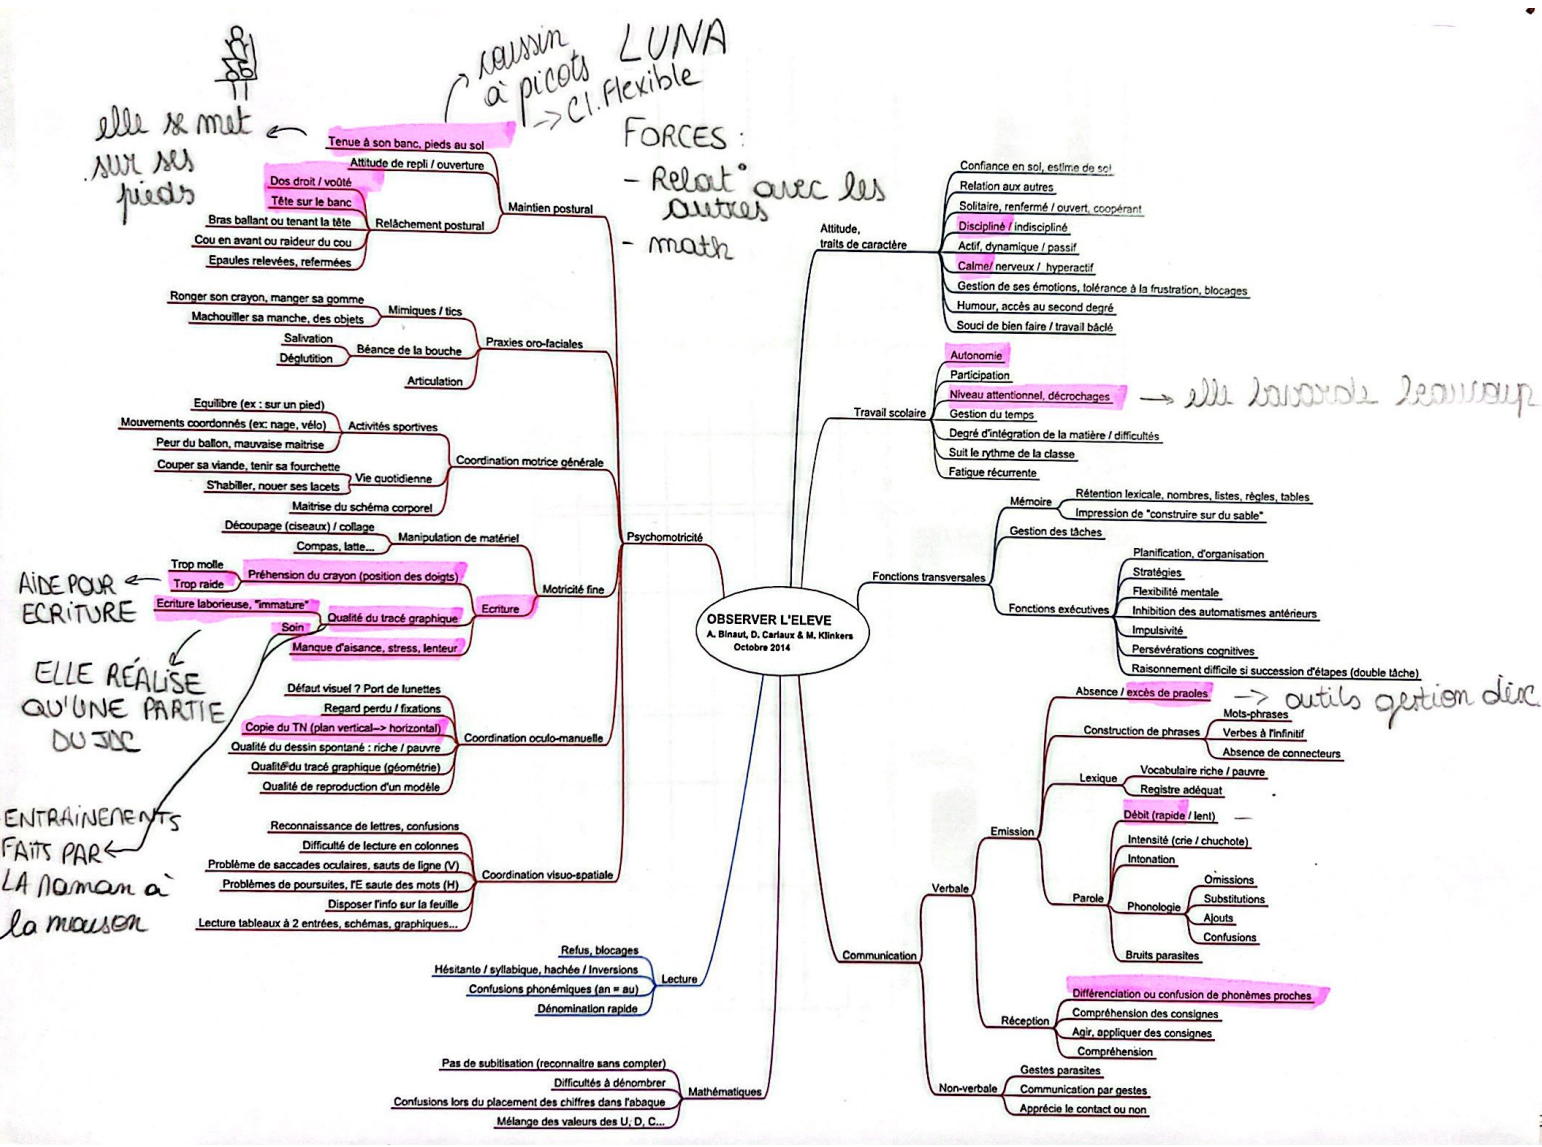 LUNA
coussin
à picots
-> Cl. Flexible
FORCES :
- Relat° avec les
autres
- math
elle se met
sur ses
pieds
Tenue à son banc, pieds au sol
Attitude de repli / ouverture
Dos droit / voûté
Tête sur le banc
Bras ballant ou tenant la tête
Cou en avant ou raideur du cou
Epaules relevées, refermées
Relâchement postural
Maintien postural
Ronger son crayon, manger sa gomme
Machouiller sa manche, des objets
Mimiques / tics
Salivation
Déglutition
Béance de la bouche
Articulation
Praxies oro-faciales
Equilibre (ex : sur un pied)
Mouvements coordonnés (ex: nage, vélo)
Peur du ballon, mauvaise maitrise
Activités sportives
Couper sa viande, tenir sa fourchette
S'habiller, nouer ses lacets
Vie quotidienne
Maitrise du schéma corporel
Coordination motrice générale
Découpage (ciseaux) / collage
Compas, latte...
Manipulation de matériel
Trop molle
Trop raide
Préhension du crayon (position des doigts)
Ecriture laborieuse, "immature"
Soin
Qualité du tracé graphique
Manque d'aisance, stress, lenteur
Ecriture
Motricité fine
AIDE POUR
ECRITURE
ELLE RÉALISE
QU'UNE PARTIE
DU JDC
ENTRAINEMENTS
FAITS PAR
LA maman à
la maison
Psychomotricité
Défaut visuel ? Port de lunettes
Regard perdu / fixations
Copie du TN (plan vertical--> horizontal)
Qualité du dessin spontané : riche / pauvre
Qualité du tracé graphique (géométrie)
Qualité de reproduction d'un modèle
Coordination oculo-manuelle
Reconnaissance de lettres, confusions
Difficulté de lecture en colonnes
Problème de saccades oculaires, sauts de ligne (V)
Problèmes de poursuites, l'E saute des mots (H)
Disposer l'info sur la feuille
Lecture tableaux à 2 entrées, schémas, graphiques...
Coordination visuo-spatiale
Refus, blocages
Hésitante / syllabique, hachée / Inversions
Confusions phonémiques (an = au)
Dénomination rapide
Lecture
Pas de subitisation (reconnaitre sans compter)
Difficultés à dénombrer
Confusions lors du placement des chiffres dans l'abaque
Mélange des valeurs des U, D, C...
Mathématiques
OBSERVER L'ELEVE
A. Binaut, D. Carlaux & M. Klinkers
Octobre 2014
Attitude,
traits de caractère
Confiance en soi, estime de soi
Relation aux autres
Solitaire, renfermé / ouvert, coopérant
Discipliné / indiscipliné
Actif, dynamique / passif
Calme/ nerveux / hyperactif
Gestion de ses émotions, tolérance à la frustration, blocages
Humour, accès au second degré
Souci de bien faire / travail bâclé
Travail scolaire
Autonomie
Participation
Niveau attentionnel, décrochages
-> elle bavarde beaucoup
Gestion du temps
Degré d'intégration de la matière / difficultés
Suit le rythme de la classe
Fatigue récurrente
Fonctions transversales
Mémoire
Rétention lexicale, nombres, listes, règles, tables
Impression de "construire sur du sable"
Gestion des tâches
Fonctions exécutives
Planification, d'organisation
Stratégies
Flexibilité mentale
Inhibition des automatismes antérieurs
Impulsivité
Persévérations cognitives
Raisonnement difficile si succession d'étapes (double tâche)
Communication
Verbale
Emission
Absence / excès de praoles
-> outils gestion disc.
Construction de phrases
Mots-phrases
Verbes à l'infinitif
Absence de connecteurs
Lexique
Vocabulaire riche / pauvre
Registre adéquat
Parole
Débit (rapide / lent)
Intensité (crie / chuchote)
Intonation
Phonologie
Omissions
Substitutions
Ajouts
Confusions
Bruits parasites
Réception
Différenciation ou confusion de phonèmes proches
Compréhension des consignes
Agir, appliquer des consignes
Compréhension
Non-verbale
Gestes parasites
Communication par gestes
Apprécie le contact ou non